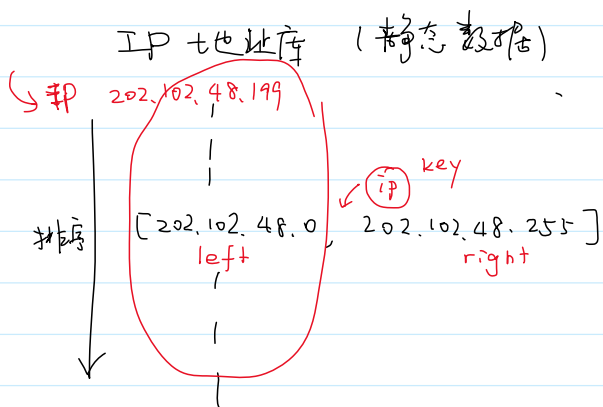 IP地址库 (静态数据)
IP 202.102.48.199
ip key
排序 [202.102.48.0, 202.102.48.255]
left right